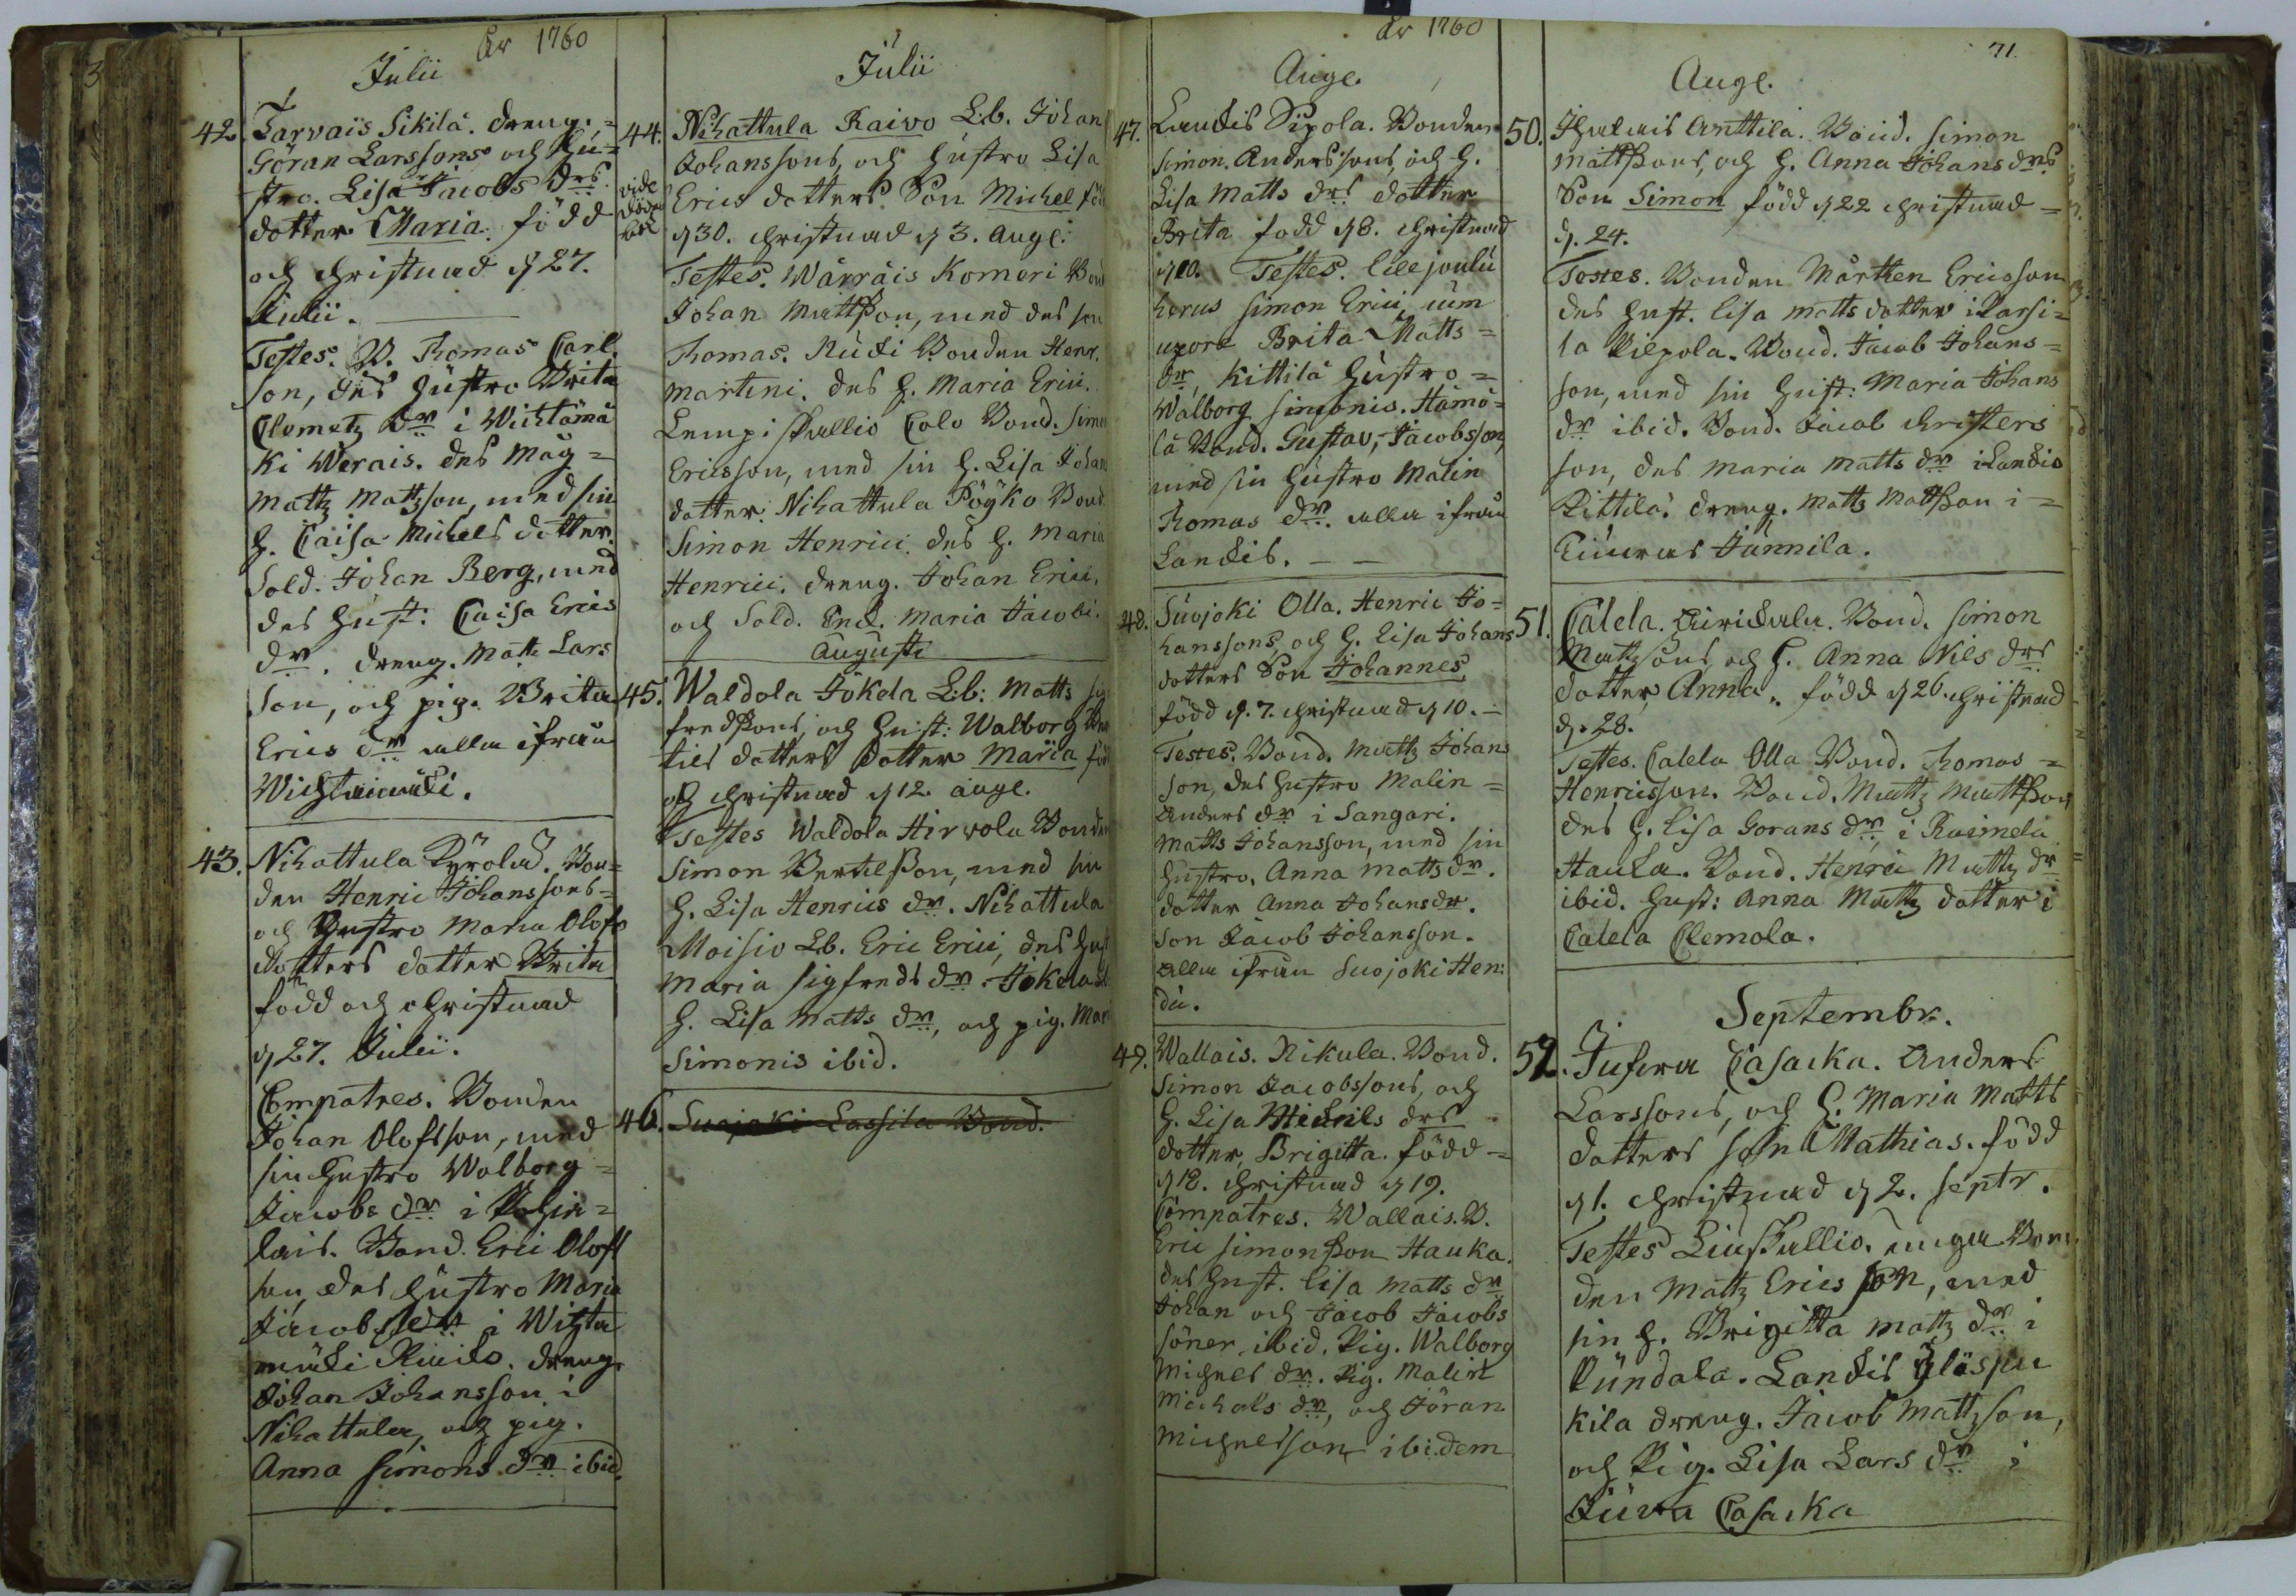 År 1760
Julii
42. Tarvais Sikilä. Dreng.
Göran Larssons och Hu=
stro. Lisa Jacobs drs
dotter Maria. född
och Christnad d 27.
Julii.
Testes. B. Thomas Carl
son, des Hustro Brita
Clemetz dr i Wichtämä
ki Werais. des Måg =
Mattz Mattzson, med sin
H. Caisa Michels dotter.
Sold. Johan Berg, med
des Hust: Caisa Erics
dr. dreng. Matts Lars
son, och pig. Brita
Erics dr alla ifrån
Wichtämäki.
43. Nihattula Pyrölad. Bon=
den Henric Johanssons =
och Hustro Maria Olofs
dotters dotter Brita
född och Christnad
d 27. Julii.
Compatres. Bonden
Johan Olofsson, med
sin Hustro Walborg =
Jacobs dr i
lais. Bond. Eric Olofs
son, des Hustro Maria
Jacobs dr i Wichta
mäki dreng.
Johan Johansson i
Nihattula, och pig.
Anna Simons dr ibid.
Julii
44. Nihattula Raivo L.b. Johan
Johanssons, och Hustro Lisa
vide döde bok
Erics dotters. Son Michel föd
d 30. Christnad d 3. Aug:
Testes. Wärräis Komeri Bond
Johan Mattsson, med des son
Thomas. Bonden Henr.
Martini. des H. Maria Erici.
Lempiskallio Calo Bond. Simon
Ericsson, med sin H. Lisa Johans
dotter. Nihattula Pöyko Bond
Simon Henrici. des H. Maria
Henrici. dreng. Johan Erici.
och Sold. Enk. Maria Jacobi.
Augusti
45. Waldola Jokela L.b: Matts Sig
fredssons, och Hust: Walborg
tils dotters dotter Maria föd
och Christnad d 12. aug.
Testes Waldola Hirvola Bonden
Simon Bertilsson, med sin
H. Lisa Henrics dr. Nihattula
Moisio L.b. Eric Erici, des Hust
Maria Sigfreds dr. Jokela
H. Lisa Matts dr, och pig. Mari
Simonis ibid.
46. Suojoki Lassila Bond.
År 1760
Aug.
47. Laukis Sipola. Bonden
Simon Anderssons, och H.
Lisa Matts drs dotter
Brita född d 8. Christnad
d 10. Testes. Lillejoulu
herus Simon Erici, cum
uxore Brita Matts =
dr, Kittilä Hustro =
Walborg Simonis. Hämö=
lä Bond. Gustav, Jacobsson,
med sin Hustro Malin
Thomas dr. alla ifrån
Laukis.
48. Suojoki Olla. Henric Jo=
hanssons, och H. Lisa Johans
dotters Son Johannes,
född d. 7. Christnad d 10.
Testes. Bond. Mattz Johans
son, des Hustro Malin =
Anders dr i Sangari.
Matts Johansson, med sin
Hustro, Anna Matts dr.
dotter Anna Johans dr.
Son Jacob Johansson.
alla ifrån Suojoki Hen:
du.
49. Wallais. Nikula. Bond.
Simon Jacobssons, och
H. Lisa Michels drs
dotter, Brigitta. född =
d 18. Christnad d 19.
Compatres. Wallais. B.
Eric Simonsson Hauka.
des Hust. Lisa Matts dr
Johan och Jacob Jacobs
söner ibid. Pig. Walborg
Michels dr. Pig. Malin
Michels dr, och Jöran
Michelsson ibidem
71.
Aug.
50. Anttila. Bond. Simon
Mattssons, och H. Anna Johans drs
Son Simon född d 22 Christnad =
d. 24.
Testes. Bonden Mårthen Ericsson
des Hust. Lisa Matts dotter i Karsi=
la Piepola. Bond. Jacob Johans=
son, med sin Hust: Maria Johans
dr ibid. Bond. Jacob Christers
son, des Maria Matts dr i Laukis
Kittilä. dreng. Matts Mattsson i =
Jännila.
51. Calela. Bond. Simon
Mattzsons och H. Anna Nils drs
dotter Anna. född d 26. Christnad
d. 28.
Testes. Calela Olla Bond. Thomas =
Henricsson. Bond. Mattz Mattsson,
des H. Lisa Görans dr, i Raimela
Hauka. Bond. Henric Mattz dr
ibid. Hust: Anna Mattz dotter i
Calela Clemola.
Septembr.
52. Jufwa Casacka. Anders
Larssons, och H. Maria Matts
dotters son Mathias. född
d 1. Christnad d 2. Septr.
Testes Liuskallio. unga Bon
den Mattz Erics son, med
sin H. Brigitta Mattz dr i
Pundala. Laukis
kila dreng. Jacob Mattzson,
och Pig. Lisa Lars dr i
Juva Casacka